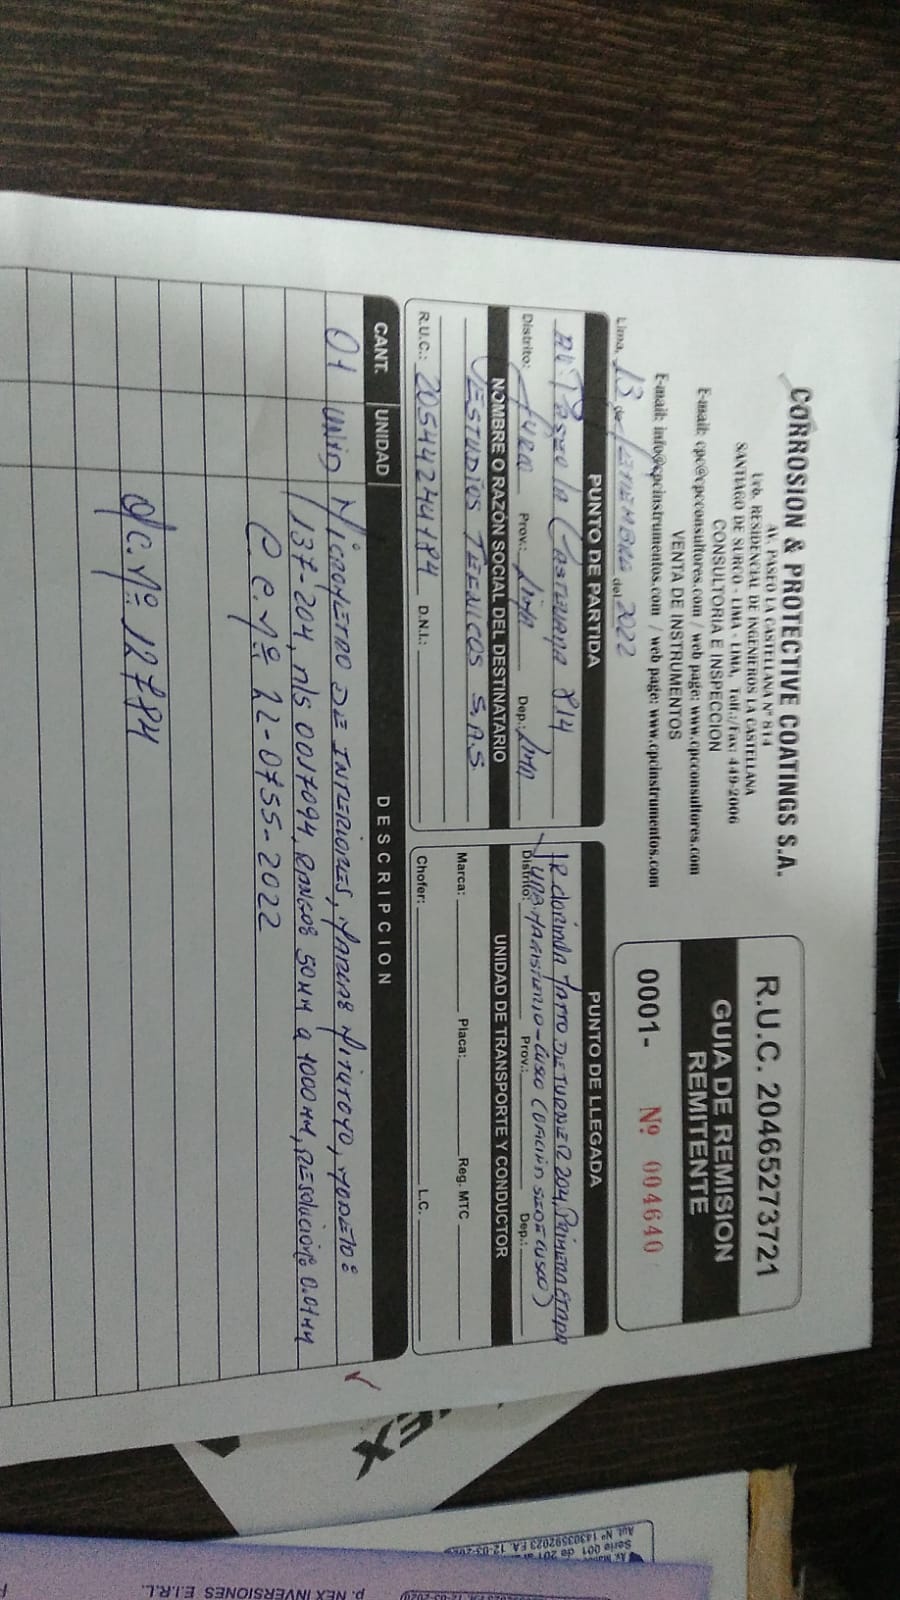 CORROSION & PROTECTIVE COATINGS S.A.
AV. PASEO LA CASTELLANA Nº 814
Urb. RESIDENCIAL DE INGENIEROS LA CASTELLANA
SANTIAGO DE SURCO - LIMA - LIMA, Telf.:/Fax: 449-2006
CONSULTORIA E INSPECCION
E-mail: cpc@cpcconsultores.com / web page: www.cpcconsultores.com
VENTA DE INSTRUMENTOS
E-mail: info@cpcinstrumentos.com / web page: www.cpcinstrumentos.com
R.U.C. 20465273721
GUIA DE REMISION
REMITENTE
0001- Nº 004640
Lima, 13 de SETIEMBRE del 2022
PUNTO DE PARTIDA
AV. Paseo la Castellana 814
Distrito: Prov.: Lima Dep.: Lima
PUNTO DE LLEGADA
DE TURNER 204, PRIMERA ETAPA
Distrito: Prov.: Dep.:
MAGISTERIO - CUSCO (SEDE CUSCO)
NOMBRE O RAZÓN SOCIAL DEL DESTINATARIO
VESTUDIOS TECNICOS S.A.S.
R.U.C.: 20544244184 D.N.I.:
UNIDAD DE TRANSPORTE Y CONDUCTOR
Marca: Placa: Reg. MTC
Chofer: L.C.
CANT. UNIDAD DESCRIPCION
01 UNID MICROMETRO DE INTERIORES, MARCA: MITUTOYO, MODELO:
137-204, n/s 0017094, RANGO: 50MM a 1000MM, RESOLUCIÓN: 0.01MM
C.C. Nº 22-0755-2022
O/C. Nº: 12784
NEX
p. NEX INVERSIONES E.I.R.L.